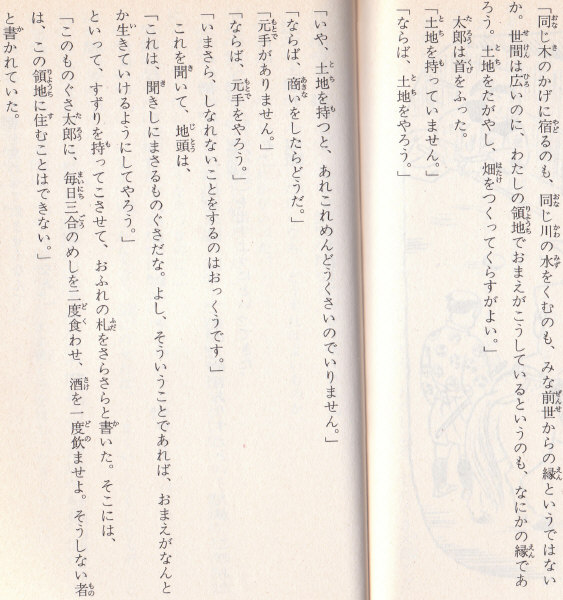 「同じ木のかげに宿るのも、同じ川の水をくむのも、みな前世からの縁というではない
か。世間は広いのに、わたしの領地でおまえがこうしているというのも、なにかの縁であ
ろう。土地をたがやし、畑をつくってくらすがよい。」
太郎は首をふった。
「土地を持っていません。」
「ならば、土地をやろう。」
「いや、土地を持つと、あれこれめんどうくさいのでいりません。」
「ならば、商いをしたらどうだ。」
「元手がありません。」
「ならば、元手をやろう。」
「いまさら、しなれないことをするのはおっくうです。」
これを聞いて、地頭は、
「これは、聞きしにまさるものぐさだな。よし、そういうことであれば、おまえがなんと
か生きていけるようにしてやろう。」
といって、すずりを持ってこさせて、おふれの札をさらさらと書いた。そこには、
「このものぐさ太郎に、毎日三合のめしを二度食わせ、酒を一度飲ませよ。そうしない者
は、この領地に住むことはできない。」
と書かれていた。